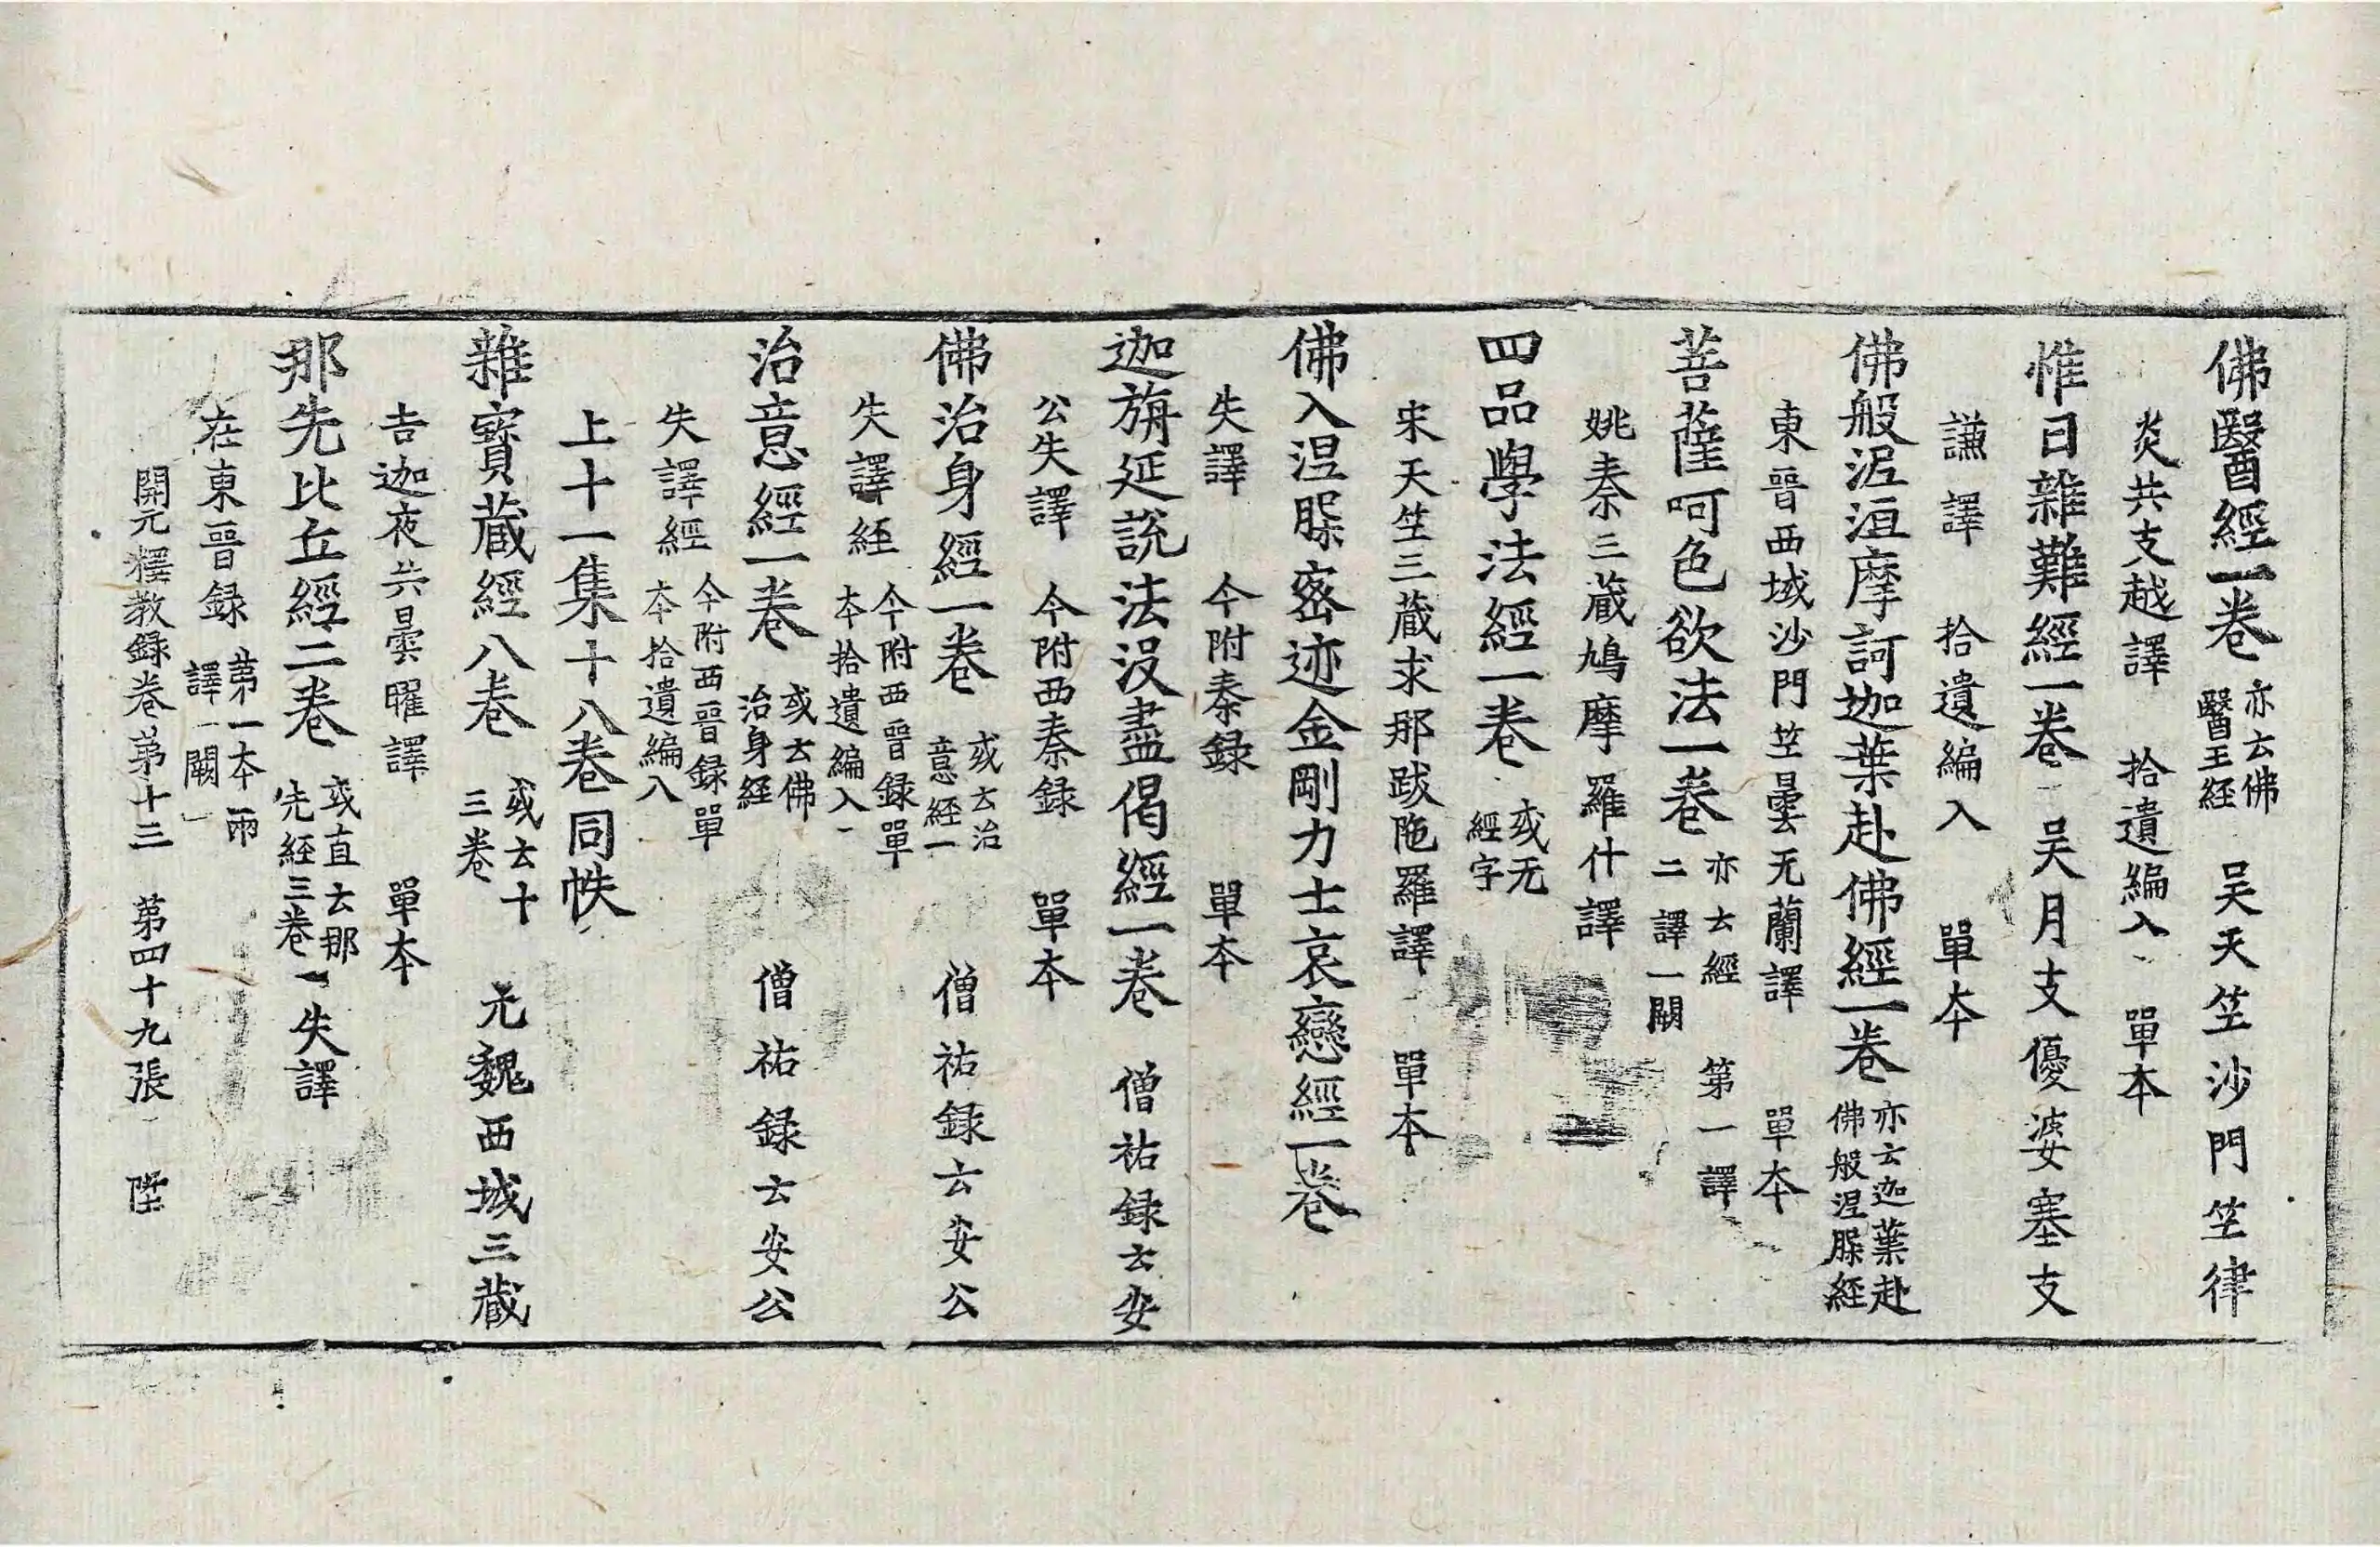 佛醫經一卷 亦云佛醫王経 吴天竺沙門竺律
炎共支越譯 拾遺編入 單本
惟日雜難經一卷 吴月支優婆塞支
謙譯 拾遺編入 單本
佛般泥洹摩訶迦葉赴佛經一卷 亦云迦葉赴佛般涅槃経
東晉西域沙門竺曇无蘭譯 單本
菩薩呵色欲法一卷 亦云經二譯一闕 第一譯
姚秦三藏鳩摩羅什譯
四品學法經一卷 或无經字
宋天竺三藏求那跋陁羅譯 單本
佛入涅槃密迹金剛力士哀戀經一卷
失譯 今附秦録 單本
迦旃延說法没盡偈經一卷 僧祐録云安
公失譯 今附西秦録 單本
佛治身經一卷 或云治意經一 僧祐録云安公
失譯経 今附西晉録單本拾遺編入
治意經一卷 或云佛治身経 僧祐録云安公
失譯經 今附西晉録單本拾遺編入
上十一集十八卷同帙
雜寳藏經八卷 或云十三卷 元魏西域三藏
吉迦夜共曇曜譯 單本
那先比丘經二卷 或直云那先経三卷 失譯
在東晉録 第一本兩譯一闕
開元釋教録卷第十三 第四十九張 陞